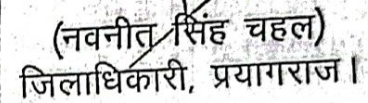 (नवनीत सिंह चहल)
जिलाधिकारी, प्रयागराज।